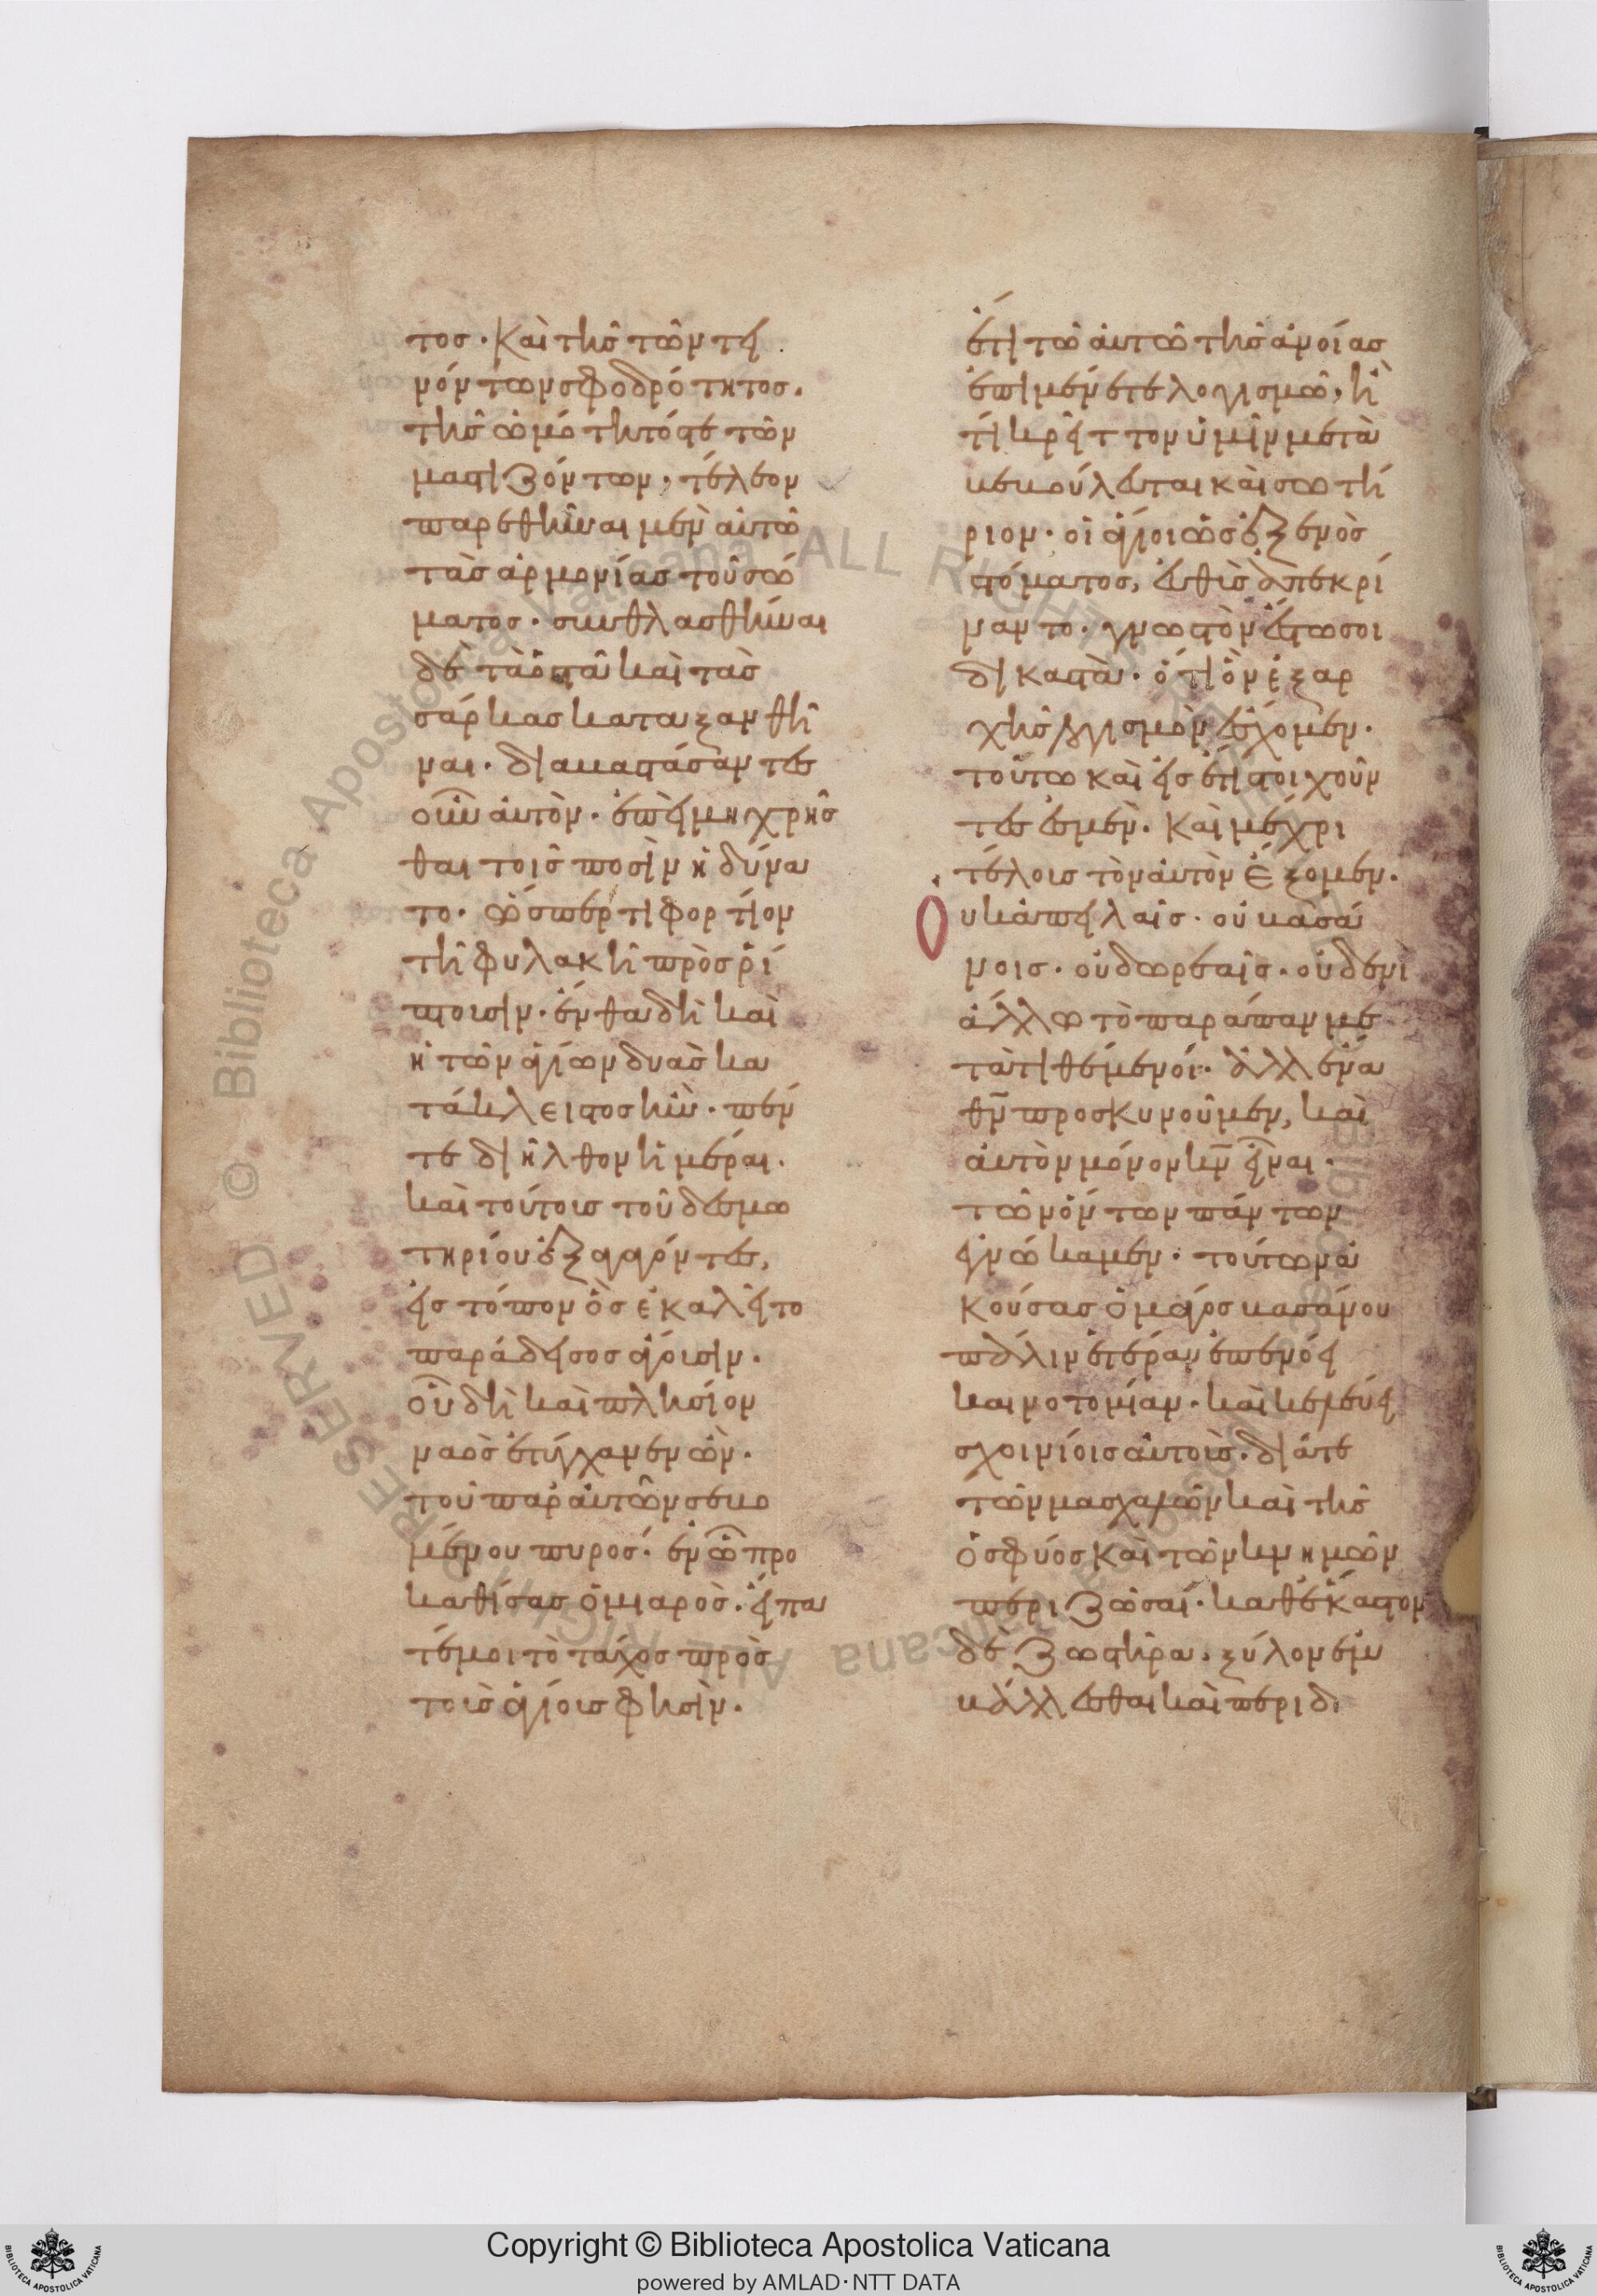 τος· Καὶ τῆς τῶν τει
νόντων σφοδρότητος·
τῆς ὠμότητός τε τῶν
μαστιζόντων, τέλεον
παρεθῆναι μὲν αὐτῶ
τὰς ἁρμονίας τοῦ σώ
ματος· συνθλασθῆναι
δὲ τὰ ὀστᾶ καὶ τὰς
σάρκας καταξανθῆ
ναι· διαβαστάσαντες
οὖν αὐτὸν· ἐπεὶ μὴ χρῆσ
θαι τοῖς ποσὶν ἠδύνα
το· ὥσπερ τι φορτίον
τῆ φυλακῆ προσρί
πτουσιν· ἔνθα δὴ καὶ
ἡ τῶν ἁγίων δυὰς κα
τάκλειστος ἦν· πέν
τε διῆλθον ἡμέραι·
καὶ τούτους τοῦ δεσμω
τηρίου ἐξαγαγόντες,
εἰς τόπον ὃς ἐκαλεῖτο
παράδεισος ἄγουσιν·
οὗ δὴ καὶ πλησίον
ναὸς ἐτύγχανεν ὢν·
τοῦ παρ' αὐτῶν σεβο
μένου πυρός· ἐν ὧ προ
καθίσας ὁ μιαρὸς· εἴπα
τέ μοι τὸ τάχος πρὸς
τοὺς ἁγίους φησὶν·
ἔτι τῶ αὐτῶ τῆς ἀνοίας
ἐπιμένετε λογισμῶ, ἢ
τί κρεῖττον ὑμῖν μετα
βεβούλευται καὶ σωτή
ριον· οἱ ἅγιοι ὡς ἐξ ἑνὸς
στόματος, εὐθὺς ἀπεκρί
ναντο· γνωστὸν ἔστω σοι
δικαστὰ· ὅτι ὃν ἐξ ἀρ
χῆς λογισμὸν εἴχομεν·
τούτω καὶ εἰσέτι στοιχοῦν
τες ἐσμὲν· Καὶ μέχρι
τέλους τὸν αὐτὸν ἕξομεν·
Οὐκ ἀπειλαῖς· οὐ βασά
νοις· οὐ δωρεαῖς· οὐδενὶ
ἄλλω τὸ παράπαν με
τατιθέμενοι· ἀλλ' ἕνα
θν προσκυνοῦμεν, καὶ
αὐτὸν μόνον κν εἶναι·
τῶν ὄντων πάντων
ἐγνώκαμεν· τούτων ἀ
κούσας ὁ μιαρὸς βασάνου
πάλιν ἑτέραν ἐπενόει
καινοτομίαν· καὶ κελεύει
σχοινίοις αὐτοὺς· διά τε
τῶν μασχαλῶν καὶ τῆς
ὀσφύος Καὶ τῶν κνημῶν
περιζῶσαι· καθ' ἕκαστον
δὲ ζωστῆρα, ξύλον ἐμ
βάλλεσθαι καὶ περιδι